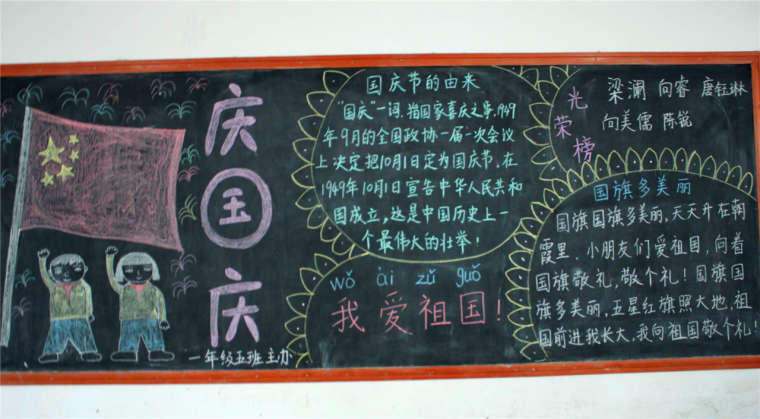 庆
国
庆
一年级五班主办
国庆节的由来
“国庆”一词，指国家喜庆之事，1949
年9月的全国政协一届一次会议
上决定把10月1日定为国庆节，在
1949年10月1日宣告中华人民共和
国成立，这是中国历史上一
个最伟大的壮举！
wǒ ài zǔ guó
我爱祖国！
光荣榜
梁澜 向睿 唐钰琳
向美儒 陈锐
国旗多美丽
国旗国旗多美丽，天天升在朝
霞里，小朋友们爱祖国，向着
国旗敬礼，敬个礼！国旗国
旗多美丽，五星红旗照大地，祖
国前进我长大，我向祖国敬个礼！